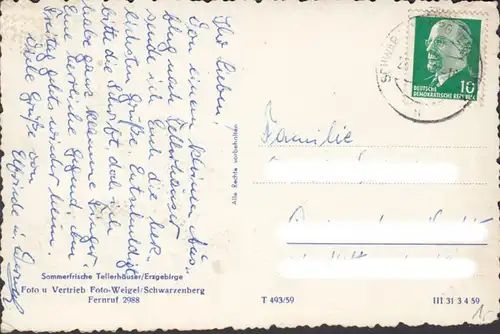 Ihr Lieben!
Von einem kleinen Aus-
flug nach Tellerhäuser
sende ich Euch die herz-
lichsten Grüße. Entschuldigt
bitte die Schrift, doch ich
habe ganz klamme Finger.
Eine herrliche Gegend, am
Freitag geht's wieder heim.
Viele Grüße von
Elfriede u.
Sommerfrische Tellerhäuser/Erzgebirge
Foto u Vertrieb Foto-Weigel/Schwarzenberg
Fernruf 2988
Alle Rechte vorbehalten
SCHWAR
DEUTSCHE
DEMOKRATISCHE REPUBLIK
10
Familie
T 493/59
III 31 3 4 59